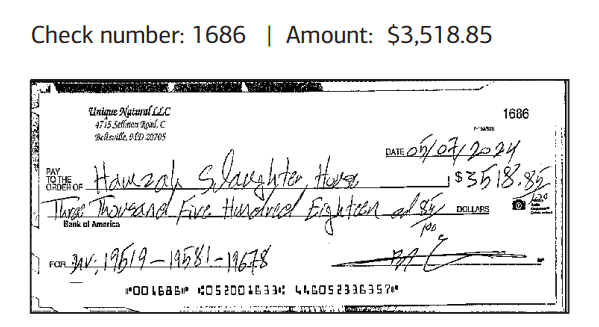 Check number: 1686 | Amount: $3,518.85
Unique Natural LLC
4715 Sellman Road, C
Beltsville, MD 20705
1686
DATE 05/07/2024
PAY TO THE ORDER OF Hamzah Slaughter House $3518.85/100
Three Thousand Five Hundred Eighteen ad 85/100 DOLLARS
Bank of America
FOR Inv: 19519-19581-19678
⑈001686⑈ ⑆052001633⑆ 446052336357⑈